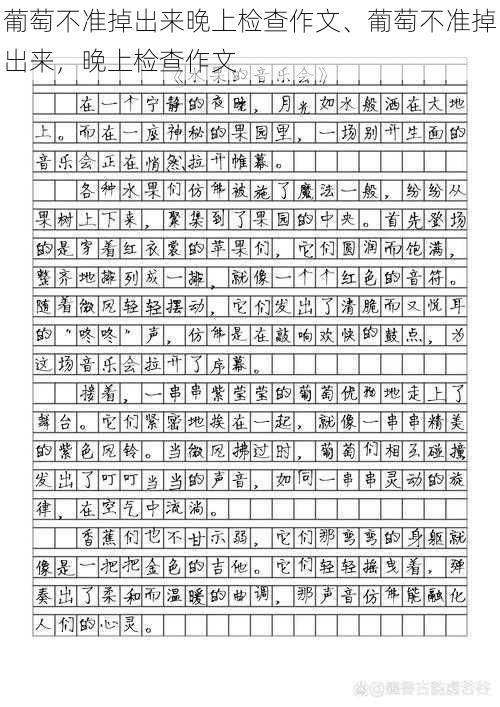 葡萄不准掉出来晚上检查作文、葡萄不准掉
出来，晚上检查作文
《水果的音乐会》
在一个宁静的夜晚，月光如水般洒在大地
上。而在一座神秘的果园里，一场别开生面的
音乐会正在悄然拉开帷幕。
各种水果们仿佛被施了魔法一般，纷纷从
果树上下来，聚集到了果园的中央。首先登场
的是穿着红衣裳的苹果们，它们圆润而饱满，
整齐地排列成一排，就像一个个红色的音符。
随着微风轻轻摆动，它们发出了清脆而又悦耳
的“咚咚”声，仿佛是在敲响欢快的鼓点，为
这场音乐会拉开了序幕。
接着，一串串紫莹莹的葡萄优雅地走上了
舞台。它们紧密地挨在一起，就像一串串精美
的紫色风铃。当微风拂过时，葡萄们相互碰撞
发出了叮叮当当的声音，如同一串串灵动的旋
律，在空气中流淌。
香蕉们也不甘示弱，它们那弯弯的身躯就
像是一把把金色的吉他。它们轻轻摇曳着，弹
奏出了柔和而温暖的曲调，那声音仿佛能融化
人们的心灵。